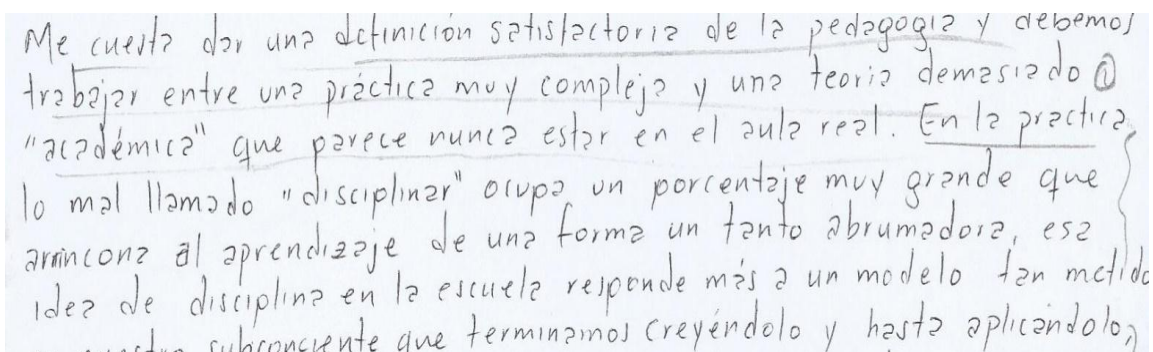 Me cuesta dar una definición satisfactoria de la pedagogía y debemos
trabajar entre una práctica muy compleja y una teoría demasiado ①
"académica" que parece nunca estar en el aula real. En la practica,
lo mal llamado "disciplinar" ocupa un porcentaje muy grande que
arrincona al aprendizaje de una forma un tanto abrumadora, esa
idea de disciplina en la escuela responde más a un modelo tan metido
subconciente que terminamos creyéndolo y hasta aplicándolo,